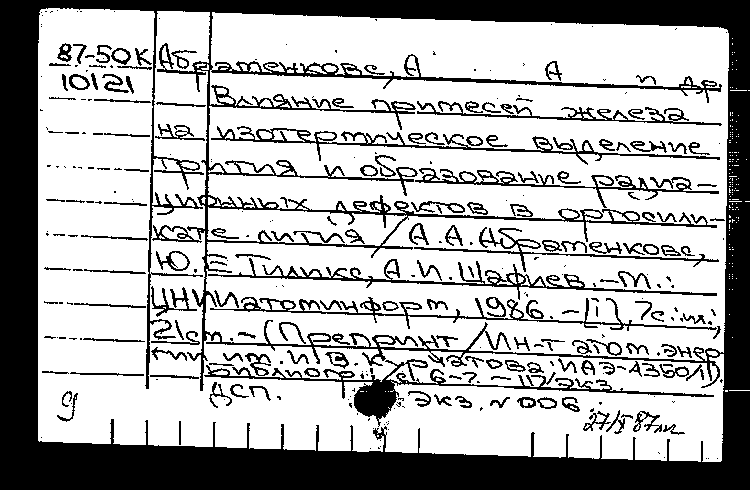 87-50К Абраменкова, А А и др
10121 Влияние примесей железа
на изотермическое выделение
трития и образование радиа-
ционных дефектов в ортосили-
кате лития / А.А.Абраменкова,
Ю.Е.Тилика, А.И.Шафиев.-М.:
ЦНИИатоминформ, 1986.-[1], 7с.:ил.;
21см.-(Препринт / Ин-т атом.энер
гии им. И.В.Курчатова; ИАЭ-4350/1).
Библиогр.: с. 6-7. - 117 экз.
9 ДСП. Экз. N 006.
27/X 87